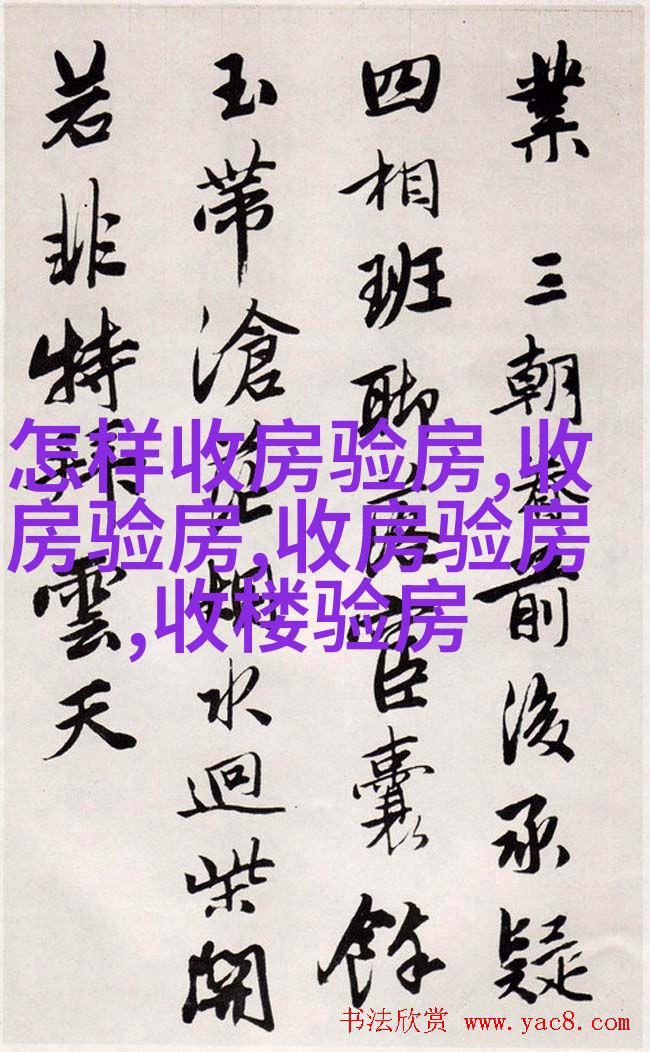 業 三朝眷前後承疑
四相班聯
臣囊餘
玉帶滄
水迴柴開
若非特拜雲天
怎样收房验房,收
房验房,收房验房
,收楼验房
书法欣赏 www.yac8.com